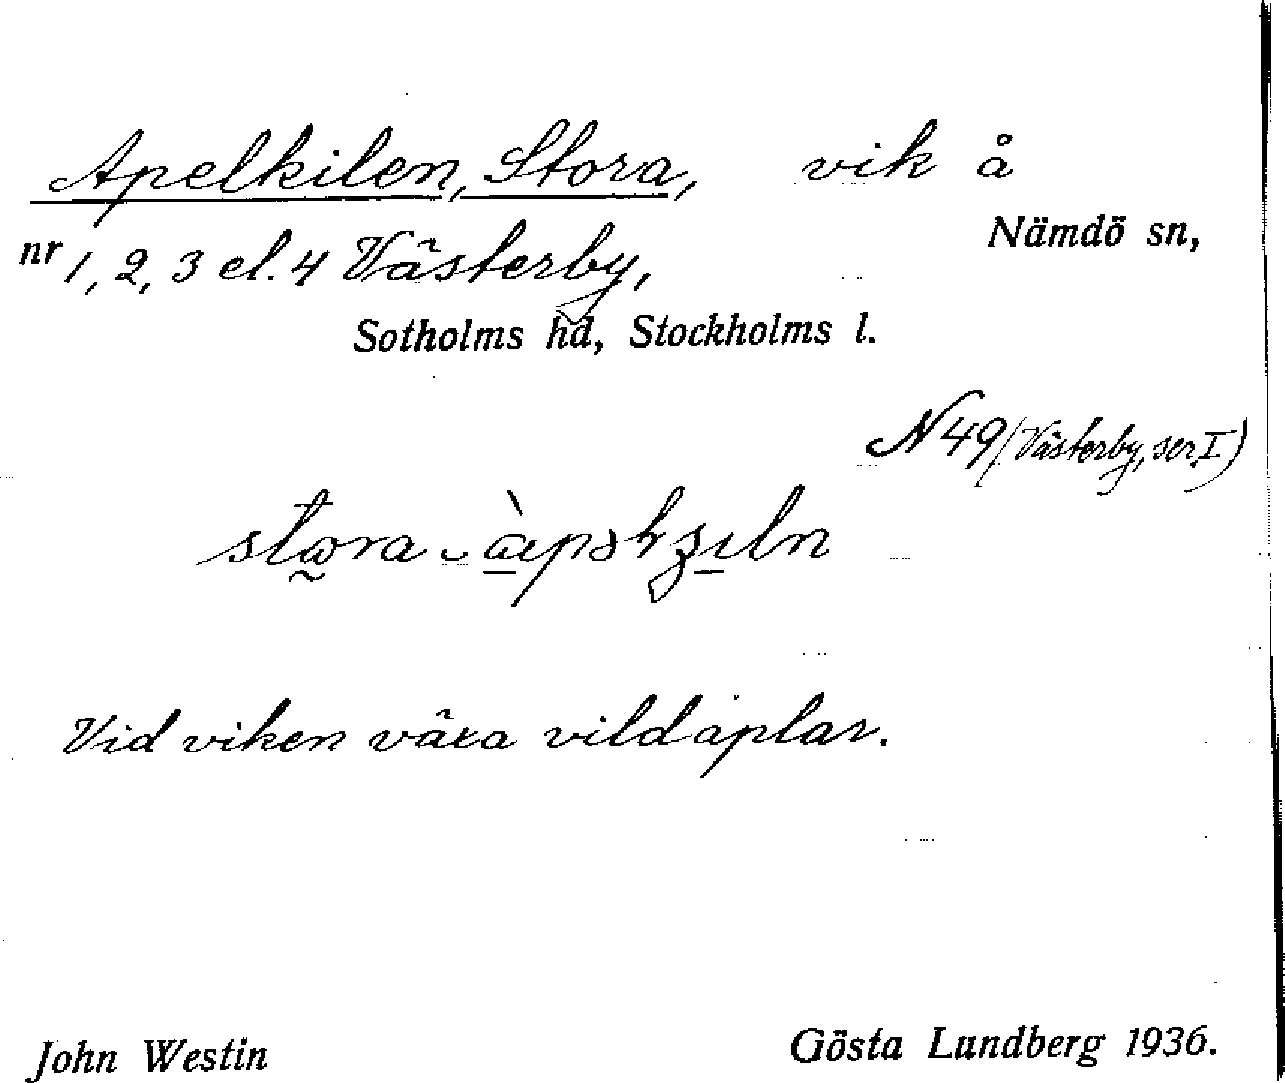 Apelkilen, Stora, vik å
nr 1, 2, 3 el. 4 Västerby, Nämdö sn,
Sotholms hd, Stockholms l.
N 49 (Västerby, ser. I)
Vid viken växa vildaplar.
John Westin Gösta Lundberg 1936.